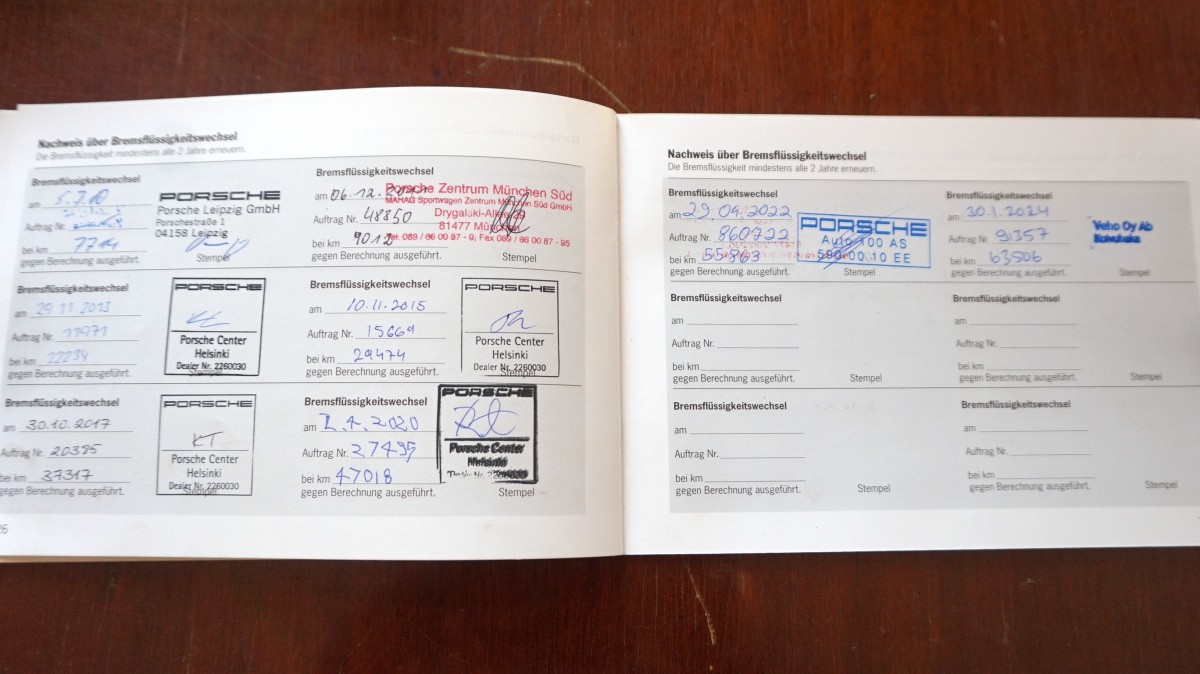 Nachweis über Bremsflüssigkeitswechsel
Die Bremsflüssigkeit mindestens alle 2 Jahre erneuern.
Bremsflüssigkeitswechsel
am 5.7.10
Auftrag Nr.
bei km 7714
gegen Berechnung ausgeführt.
PORSCHE
Porsche Leipzig GmbH
Porschestraße 1
04158 Leipzig
Stempel
Bremsflüssigkeitswechsel
am 06.12.
Auftrag Nr. 48850
bei km 9012
gegen Berechnung ausgeführt.
Porsche Zentrum München Süd
MAHAG Sportwagen Zentrum München Süd GmbH
Drygalski-Allee
81477 München
Tel. 089 / 66 00 87 - 0, Fax 089 / 66 00 87 - 95
Stempel
Bremsflüssigkeitswechsel
am 29.11.2013
Auftrag Nr. 11971
bei km 22234
gegen Berechnung ausgeführt.
PORSCHE
Porsche Center
Helsinki
Dealer Nr. 2260030
Bremsflüssigkeitswechsel
am 10.11.2015
Auftrag Nr. 15669
bei km 29474
gegen Berechnung ausgeführt.
PORSCHE
Porsche Center
Helsinki
Dealer Nr. 2260030
Stempel
Bremsflüssigkeitswechsel
am 30.10.2017
Auftrag Nr. 20385
bei km 37317
gegen Berechnung ausgeführt.
PORSCHE
KT
Porsche Center
Helsinki
Dealer Nr. 2260030
Stempel
Bremsflüssigkeitswechsel
am 2.4.2020
Auftrag Nr. 27495
bei km 47018
gegen Berechnung ausgeführt.
PORSCHE
Porsche Center
Helsinki
Stempel
26
Nachweis über Bremsflüssigkeitswechsel
Die Bremsflüssigkeit mindestens alle 2 Jahre erneuern.
Bremsflüssigkeitswechsel
am 29.04.2022
Auftrag Nr. 860722
bei km 55863
gegen Berechnung ausgeführt.
PORSCHE
Auto 100 AS
590 00 10 EE
Stempel
Bremsflüssigkeitswechsel
am 30.1.2024
Auftrag Nr. 91357
bei km 63506
gegen Berechnung ausgeführt.
Veho Oy Ab
Stempel
Bremsflüssigkeitswechsel
am
Auftrag Nr.
bei km
gegen Berechnung ausgeführt.
Stempel
Bremsflüssigkeitswechsel
am
Auftrag Nr.
bei km
gegen Berechnung ausgeführt.
Stempel
Bremsflüssigkeitswechsel
am
Auftrag Nr.
bei km
gegen Berechnung ausgeführt.
Stempel
Bremsflüssigkeitswechsel
am
Auftrag Nr.
bei km
gegen Berechnung ausgeführt.
Stempel